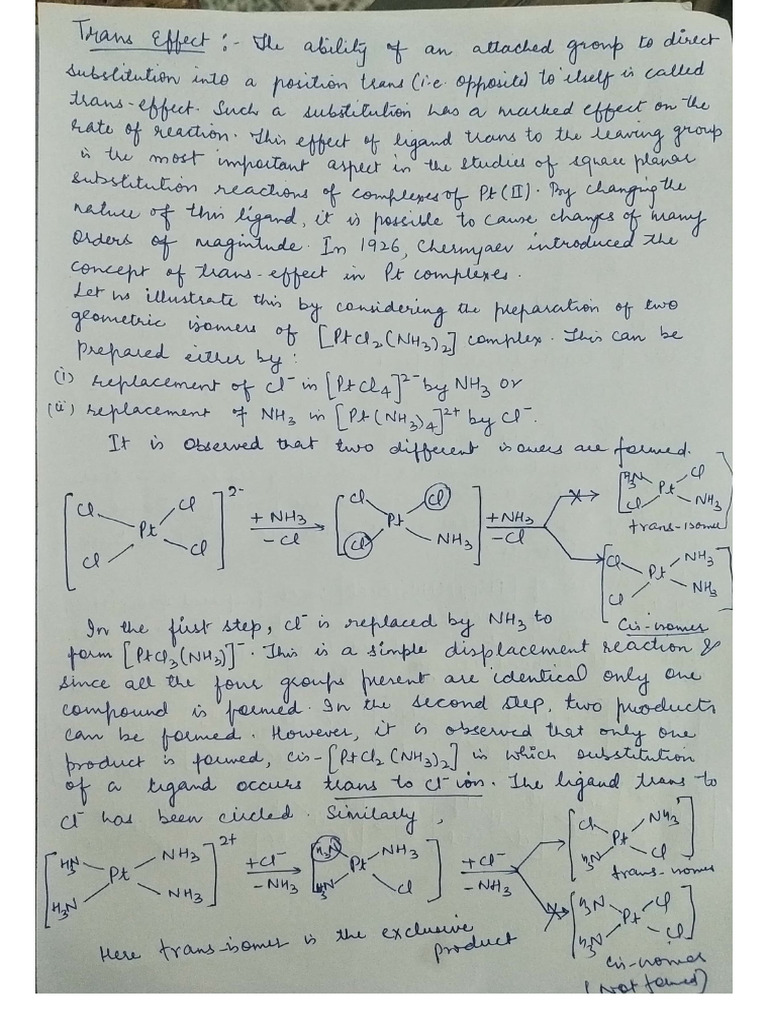 Trans Effect :- The ability of an attached group to direct
substitution into a position trans (i.e. opposite) to itself is called
trans-effect. Such a substitution has a marked effect on the
rate of reaction. This effect of ligand trans to the leaving group
is the most important aspect in the studies of square planar
substitution reactions of complexes of Pt (II). By changing the
nature of this ligand, it is possible to cause changes of many
orders of magnitude. In 1926, Chernyaev introduced the
concept of trans-effect in Pt complexes.
Let us illustrate this by considering the preparation of two
geometric isomers of [PtCl2(NH3)2] complex. This can be
prepared either by:
(i) replacement of Cl⁻ in [PtCl4]²⁻ by NH3 or
(ii) replacement of NH3 in [Pt(NH3)4]²⁺ by Cl⁻.
It is observed that two different isomers are formed.
[Cl Cl Pt Cl Cl]²⁻ +NH3 -Cl [Cl Cl Pt Cl NH3] +NH3 -Cl
[H3N Cl Pt Cl NH3]
trans-isomer
[Cl NH3 Pt Cl NH3]
Cis-isomer
In the first step, Cl⁻ is replaced by NH3 to
form [PtCl3(NH3)]⁻. This is a simple displacement reaction &
since all the four groups present are identical only one
compound is formed. In the second step, two products
can be formed. However, it is observed that only one
product is formed, cis-[PtCl2(NH3)2] in which substitution
of a ligand occurs trans to Cl⁻ ion. The ligand trans to
Cl⁻ has been circled. Similarly,
[H3N NH3 Pt H3N NH3]²⁺ +Cl⁻ -NH3 [H3N NH3 Pt H3N Cl] +Cl⁻ -NH3
[Cl NH3 Pt H3N Cl]
trans-isomer
[H3N Cl Pt H3N Cl]
Cis-isomer
(Not formed)
Here trans-isomer is the exclusive
product